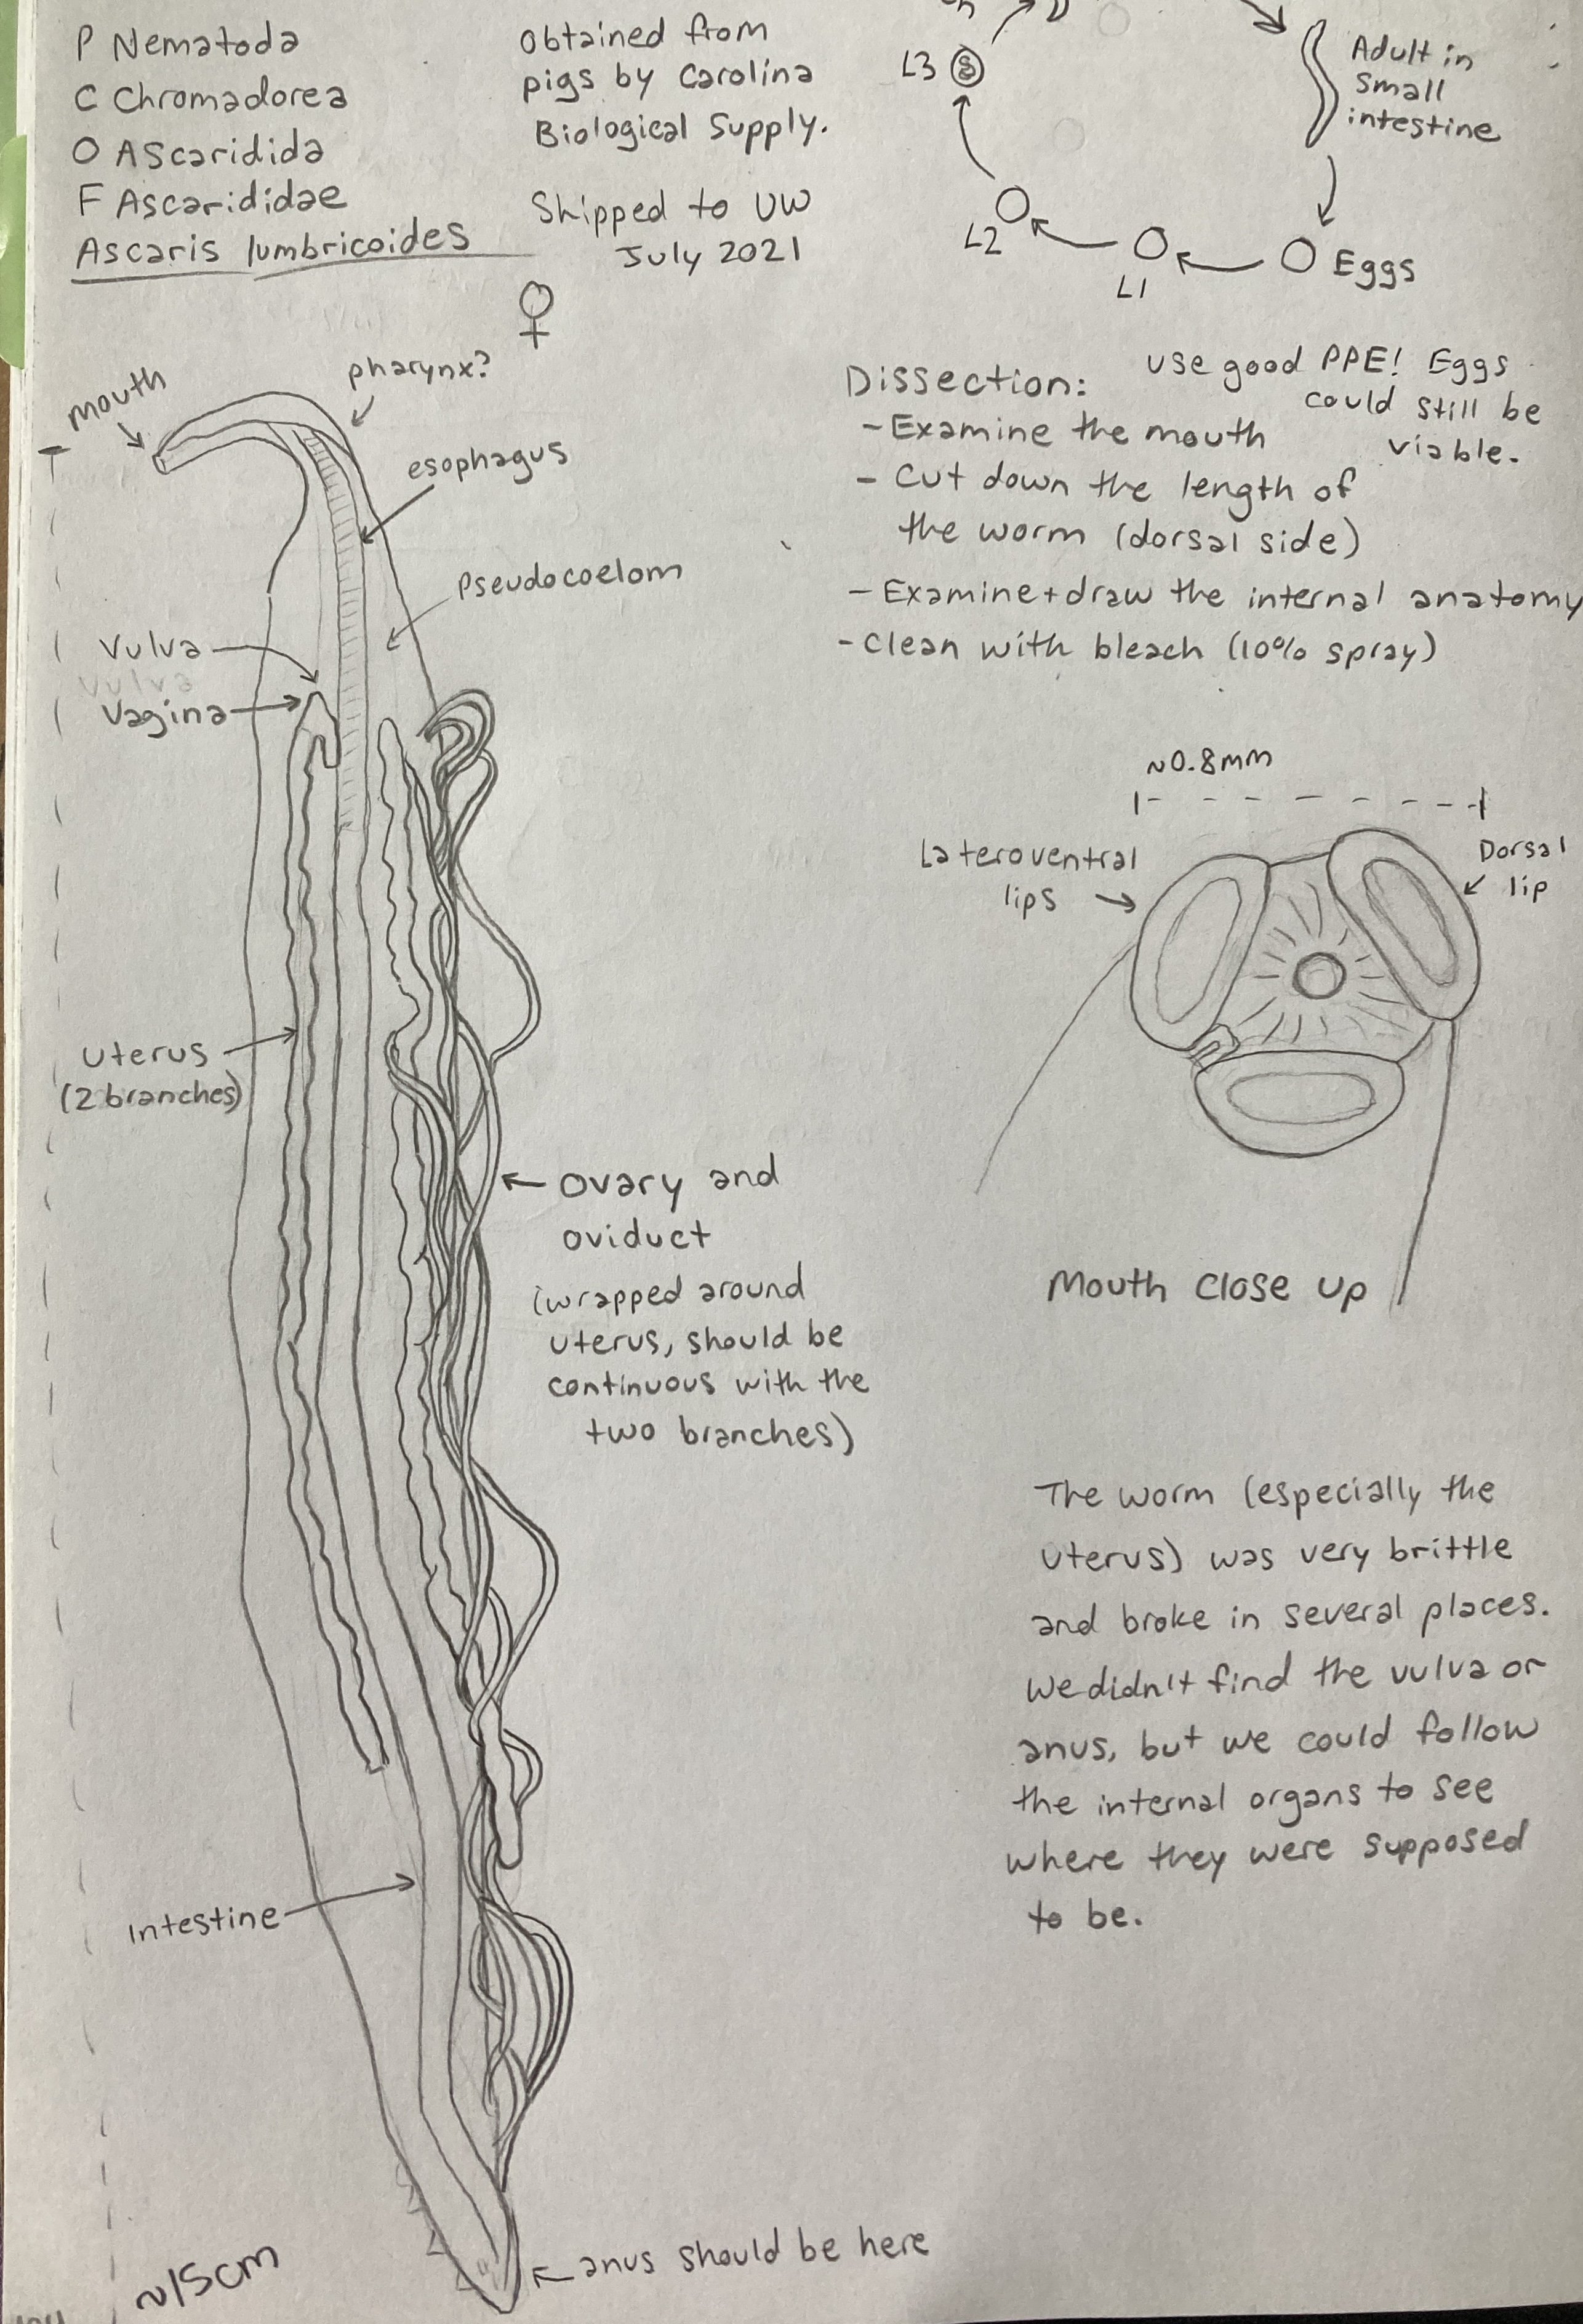 P Nematoda
C Chromadorea
O Ascaridida
F Ascarididae
Ascaris lumbricoides
Obtained from
pigs by Carolina
Biological Supply.
Shipped to UW
July 2021
♀
L3
L2
L1
Eggs
Adult in
small
intestine
mouth
pharynx?
esophagus
pseudocoelom
Vulva
vulva
Vagina
Uterus
(2 branches)
Ovary and
oviduct
(wrapped around
uterus, should be
continuous with the
two branches)
Intestine
anus should be here
~15cm
Dissection:
use good PPE! Eggs
could still be
viable.
- Examine the mouth
- Cut down the length of
the worm (dorsal side)
- Examine + draw the internal anatomy
- Clean with bleach (10% spray)
~0.8mm
Lateroventral
lips
Dorsal
lip
Mouth close up
The worm (especially the
uterus) was very brittle
and broke in several places.
We didn't find the vulva or
anus, but we could follow
the internal organs to see
where they were supposed
to be.